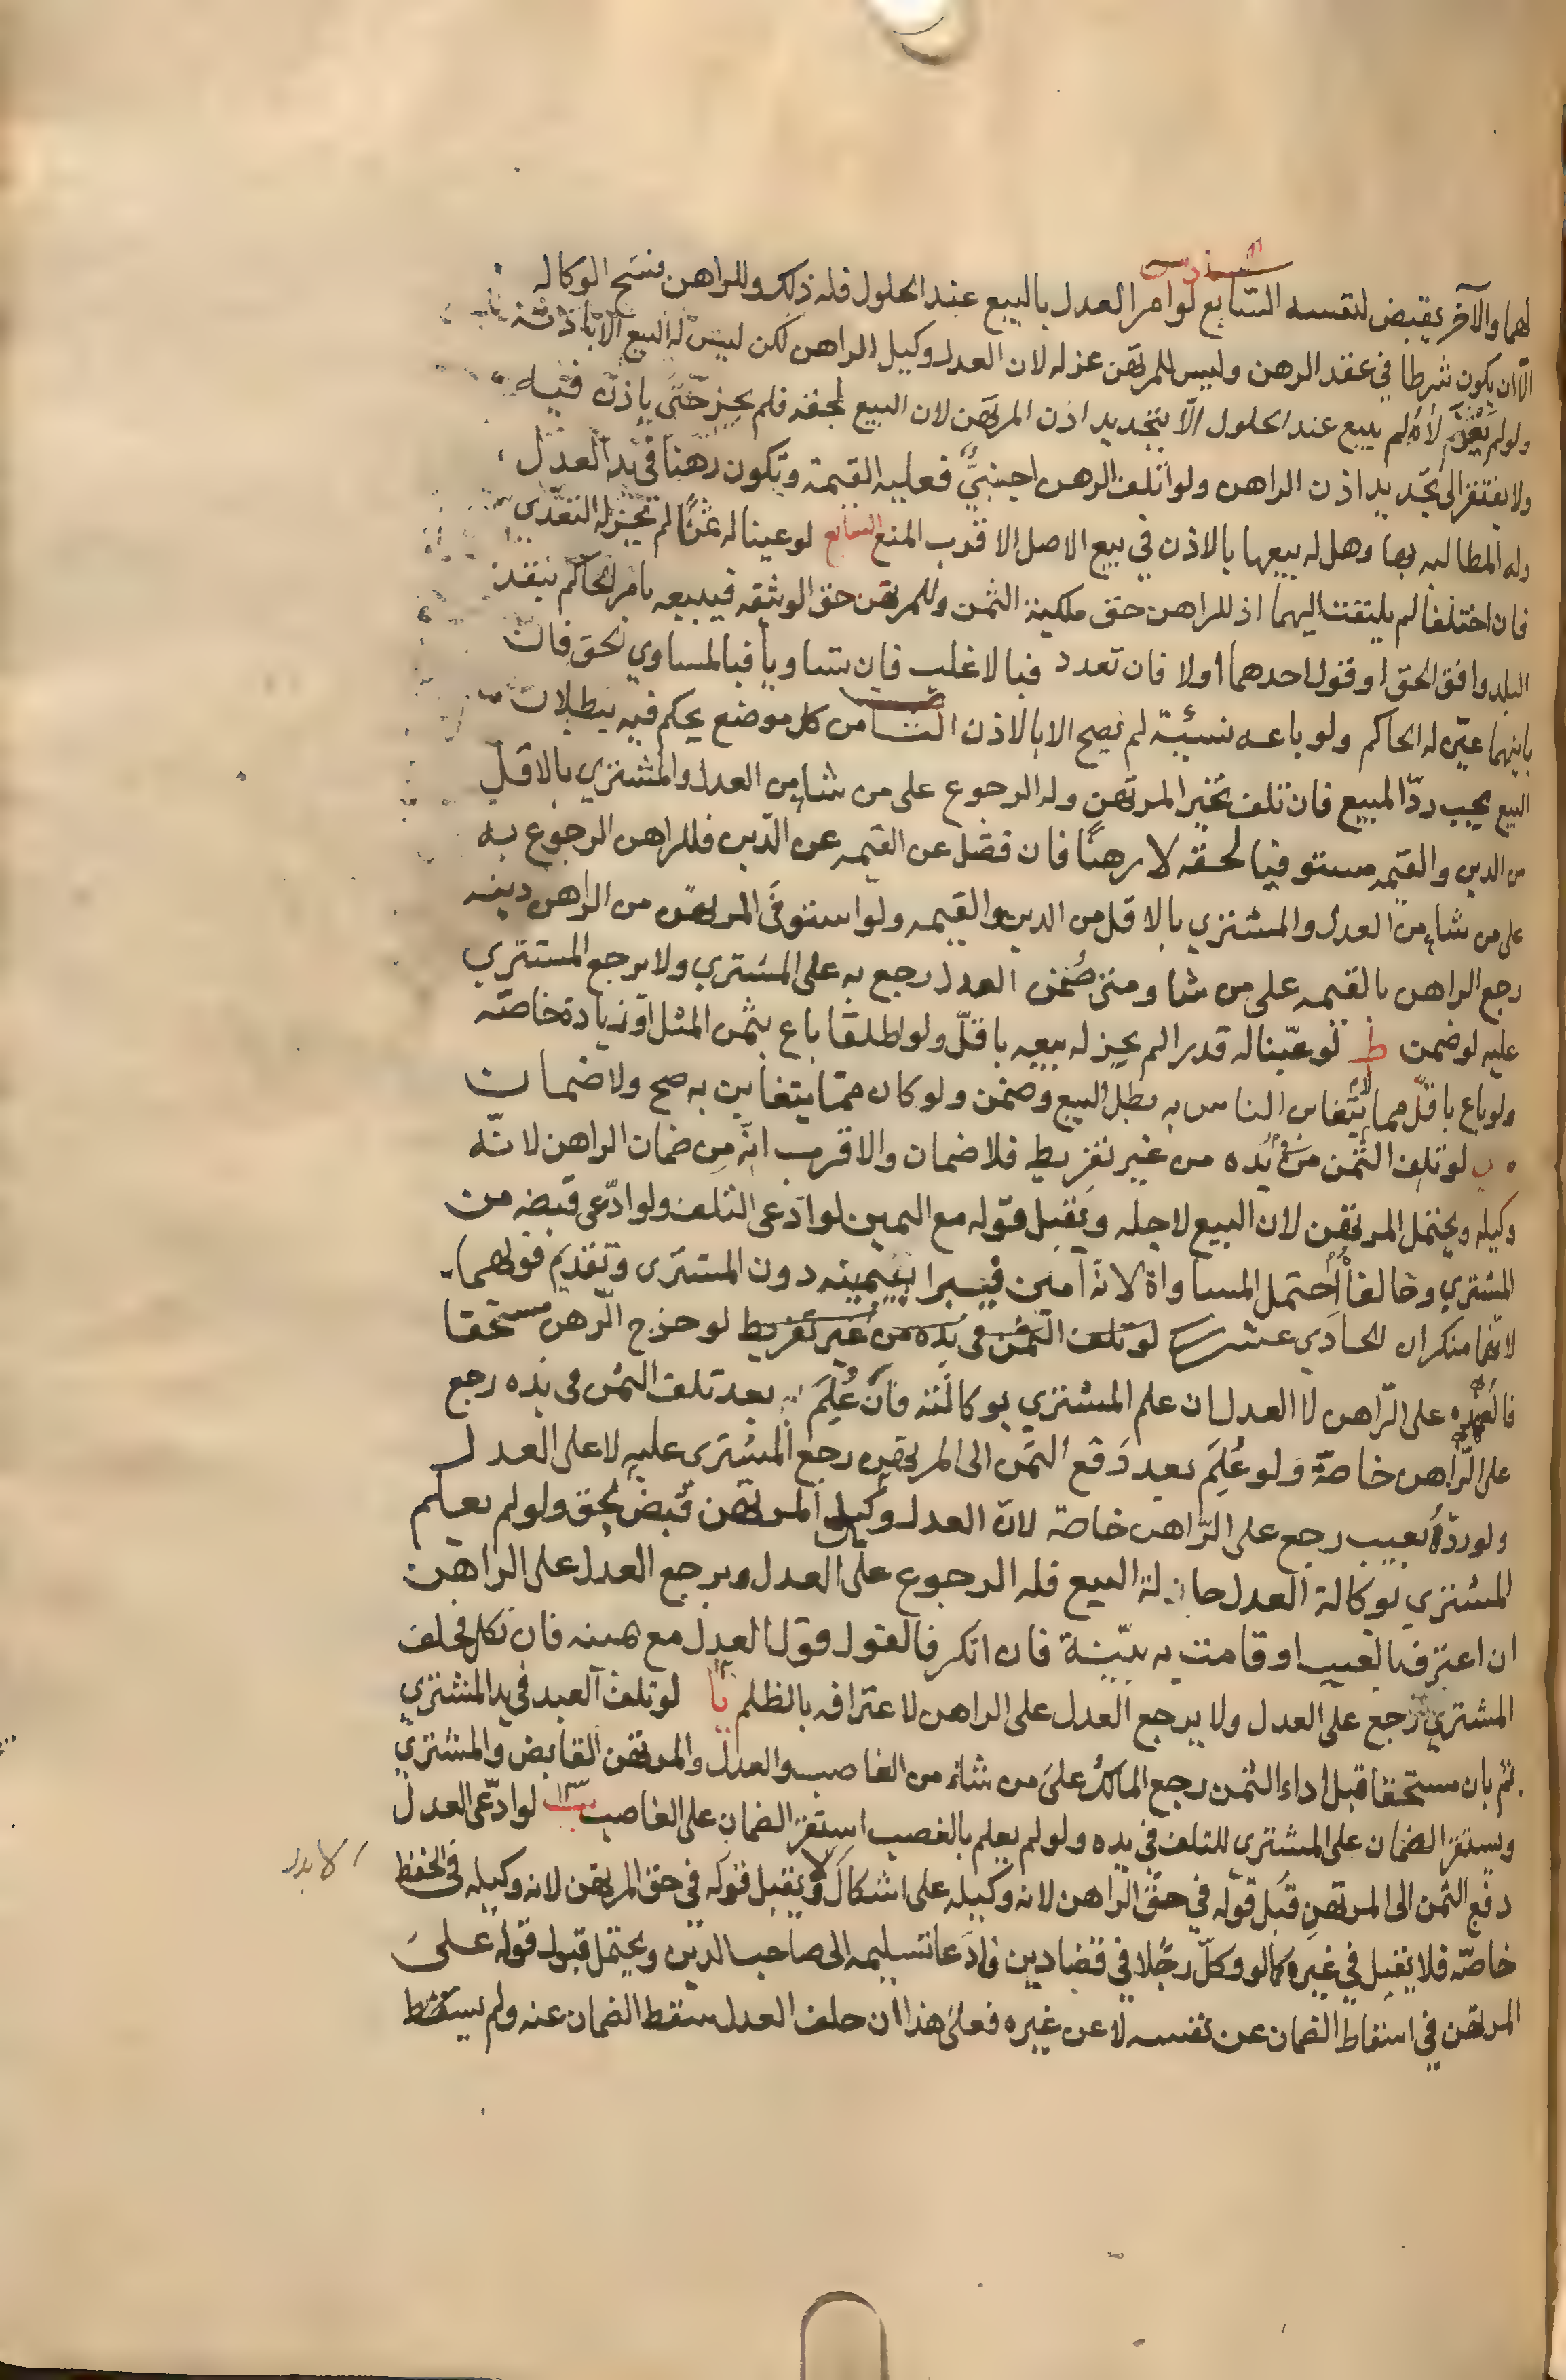 السادس
لهما والآخر يقبض لنفسه السابع لو امر العدل بالبيع عند الحلول فله ذلك وللراهن فسخ الوكاله
الا ان يكون شرطا في عقد الرهن وليس للمرتهن عزله لان العدل وكيل الراهن لكن ليس له البيع الا باذنه
ولو لم يعزلاه لم يبع عند الحلول الا بتجديد اذن المرتهن لان البيع لحقه فلم يجز حتى ياذن فيه
ولا يفتقر الى تجديد اذن الراهن ولو اتلف الرهن اجنبي فعليه القيمة وتكون رهنا في يد العدل
وله المطالبه بها وهل له بيعها بالاذن في بيع الاصل الاقرب المنع السابع لو عينا له ثمنا لم يجز له التعدي
فان اختلفا لم يلتفت اليهما اذ للراهن حق ملكية الثمن وللمرتهن حق الوثيقه فيبيعه بامر الحاكم بنقد
البلد وافق الحق او قول احدهما اولا فان تعدد فبالاغلب فان تساويا فبالمساوي لحق فان
باينهما عين له الحاكم ولو باعه نسئية لم يصح الا بالاذن الثامن كل موضع يحكم فيه ببطلان
البيع يجب رد المبيع فان تلف تخير المرتهن وله الرجوع على من شاء من العدل والمشتري بالاقل
من الدين والقيمه مستوفيا لحقه لا رهنا فان فضل عن القيمه عن الدين فللراهن الرجوع به
على من شاء من العدل والمشتري بالاقل من الدين والقيمه ولو استوفى المرتهن من الراهن دينه
رجع الراهن بالقيمه على من شا ومتى ضمن العدل رجع به على المشتري ولا يرجع المشتري
عليه لو ضمن ط لو عينا له قدرا لم يجز له بيعه باقل ولو اطلقا باع بثمن المثل او زيادة خاصه
ولو باع باقل مما لا يتغابن الناس به بطل البيع وضمن ولو كان مما يتغابن به صح ولا ضمان
ى لو تلف الثمن في يده من غير تفريط فلا ضمان والاقرب انه من ضمان الراهن لانه
وكيله ويحتمل المرتهن لان البيع لاجله ويقبل قوله مع اليمين لو ادعى التلف ولو ادعى قبضه من
المشتري وخالفا احتمل المساواة لانه امين فيبرا بيمينه دون المشترى وتقديم قولهما
لانهما منكران الحادي عشر لو تلف الثمن في يده من غير تفريط لو خرج الرهن مستحقا
فالعهده على الراهن لا العدل ان علم المشتري بوكالته فان علم بعد تلف الثمن في يده رجع
على الراهن خاصة ولو علم بعد دفع الثمن الى المرتهن رجع المشترى عليه لا على العدل
ولو رده بعيب رجع على الراهن خاصة لان العدل وكيل المرتهن قبض بحق ولو لم يعلم
المشتري بوكالة العدل حالة البيع فله الرجوع على العدل ويرجع العدل على الراهن
ان اعترف بالعيب او قامت به بينة فان انكر فالقول قول العدل مع يمينه فان نكل فحلف
المشتري رجع على العدل ولا يرجع العدل على الراهن لاعترافه بالظلم يا لو تلف العبد في يد المشتري
ثم بان مستحقا قبل اداء الثمن رجع المالك على من شاء من الغاصب والعدل والمرتهن القابض والمشتري
ويستقر الضمان على المشترى للتلف في يده ولو لم يعلم بالغصب استقر الضمان على الغاصب يب لو ادعى العدل
دفع الثمن الى المرتهن قبل قوله في حق الراهن لانه وكيله على اشكال ولا يقبل قوله في حق المرتهن لانه وكيله في الحفظ
خاصه فلا يقبل في غيره كما لو وكل رجلا في قضا دين فادعا تسليمه الى صاحب الدين ويحتمل قبول قوله على
المرتهن في اسقاط الضمان عن نفسه لا عن غيره فعلى هذا ان حلف العدل سقط الضمان عنه ولم يسقط